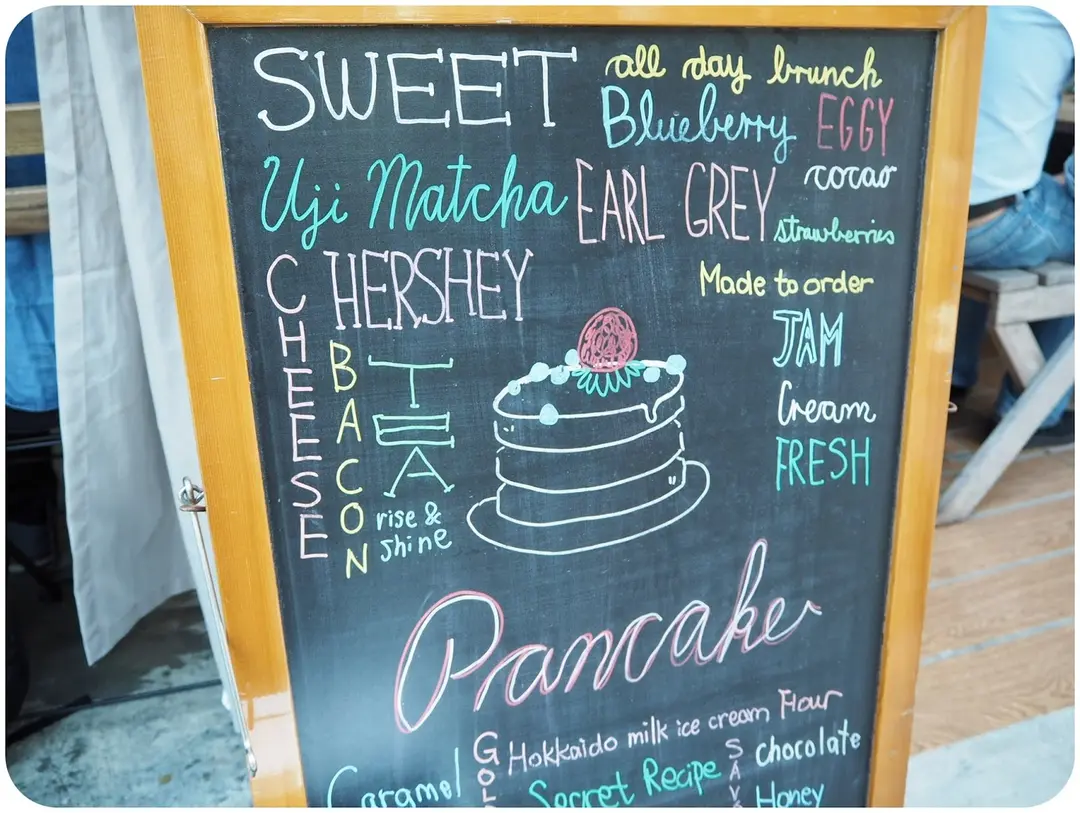 SWEET
all day brunch
Blueberry EGGY
Uji Matcha
EARL GREY
cocao
strawberries
CHEESE
HERSHEY
Made to order
BACON
TEA
JAM
Cream
FRESH
rise &
shine
Pancake
Hokkaido milk ice cream
Flour
Caramel
Secret Recipe
chocolate
Honey